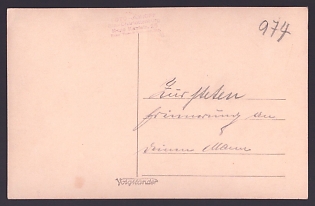 974
Zur steten
Erinnerung an
deinen Mann
Voigtländer